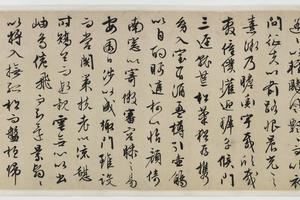 問征夫以前路恨晨光之
熹微乃瞻衡宇載欣載
奔僮僕歡迎稚子候門
三逕就荒松菊猶存攜
幼入室有酒盈樽引壺觴
以自酌眄庭柯以怡顏倚
南窗以寄傲審容膝之易
安園日涉以成趣門雖設
而常關策扶老以流憩
時矯首而遐觀雲無心以出
岫鳥倦飛而知還景翳翳
以將入撫孤松而盤桓歸